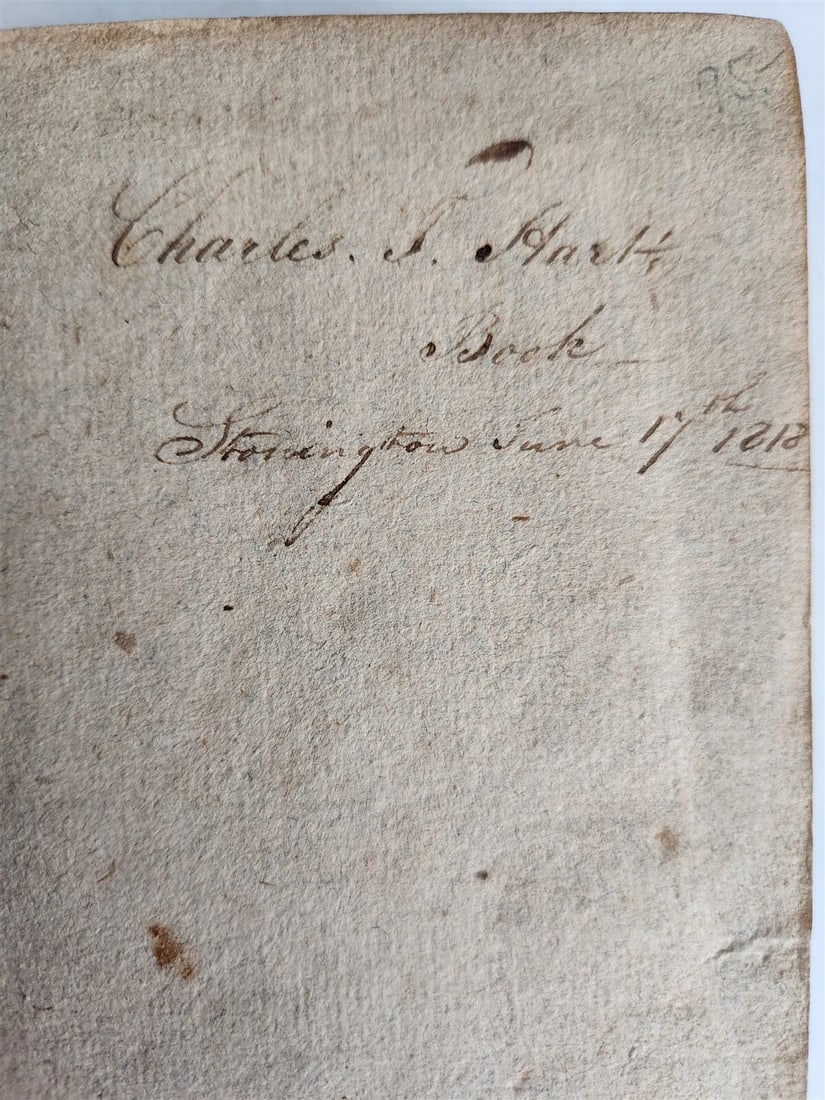 95
Charles. T. Hart's
Book
Stonington June 17th 1818